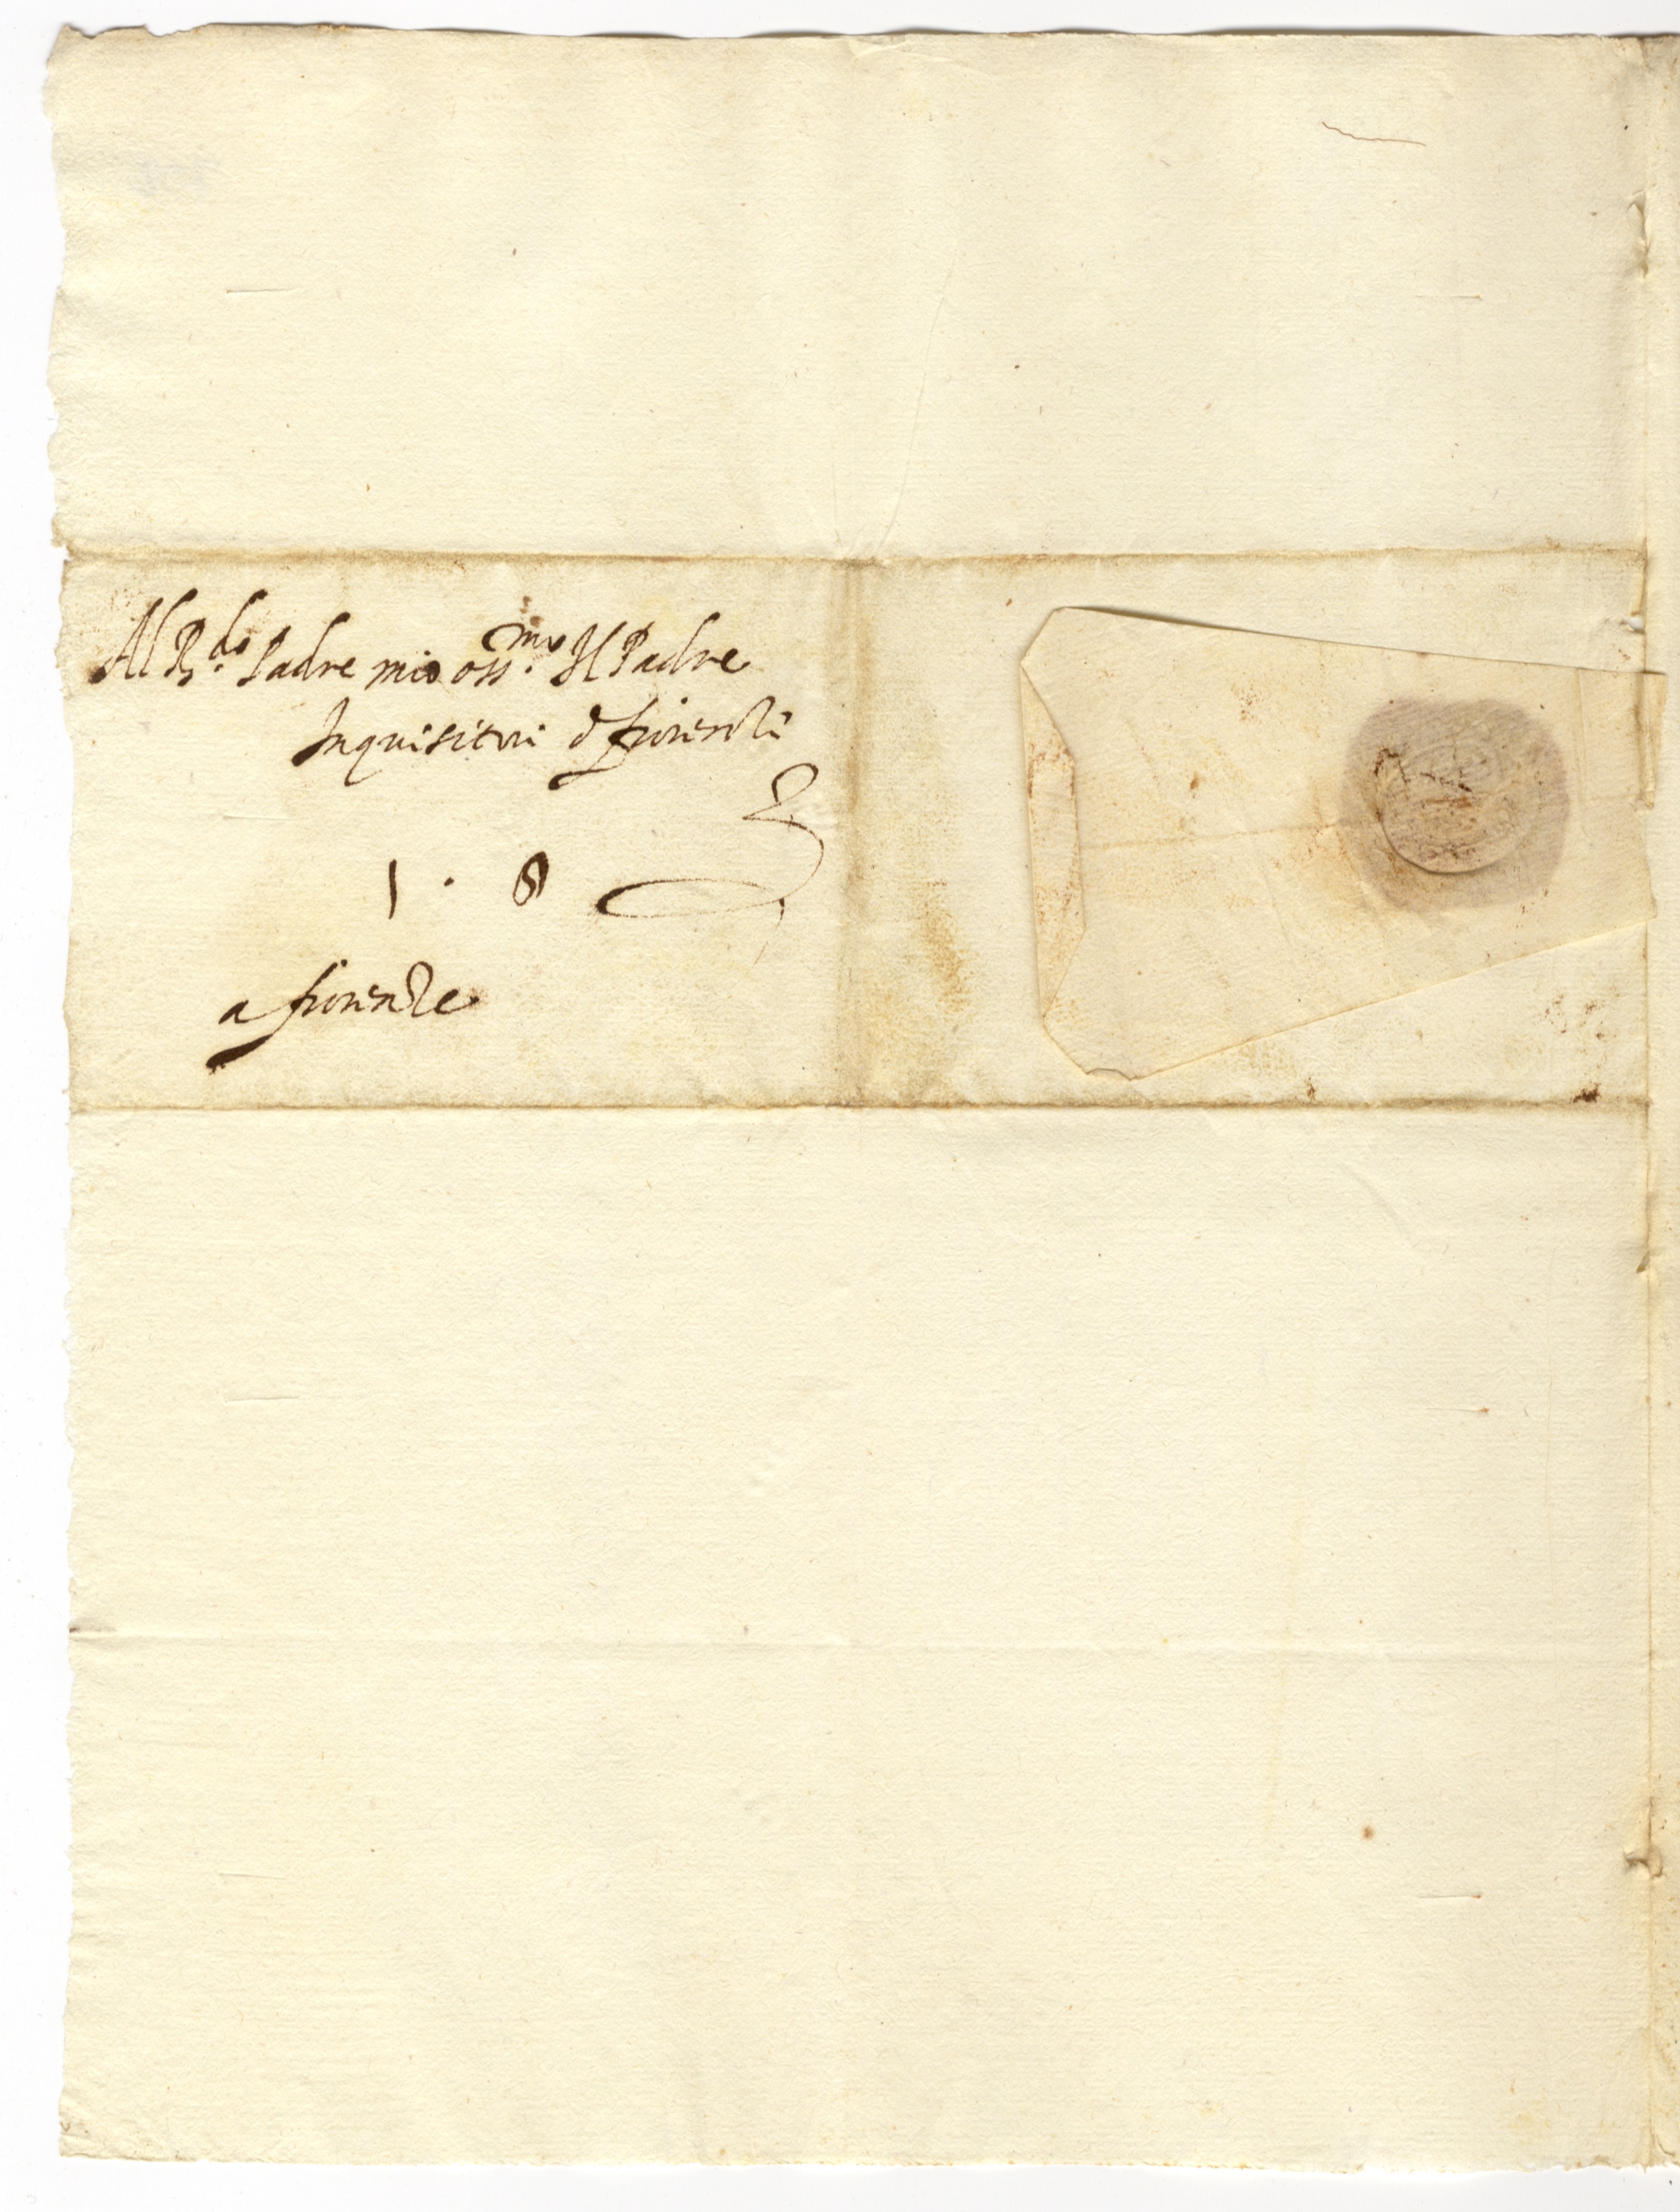 Al R.do Padre mio oss.mo Il Padre
Inquisitori di fiorenza
1 . 8
a fiorenze